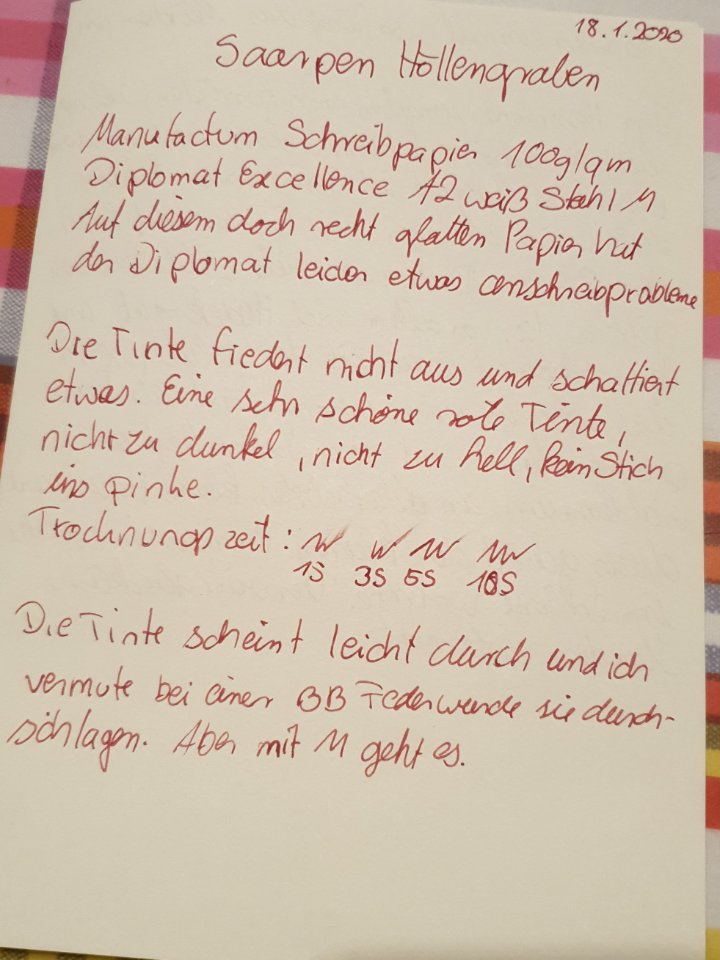 18.1.2020
Saarpen Höllengraben
Manufactum Schreibpapier 100g/qm
Diplomat Excellence A2 weiß Stahl M
Auf diesem doch recht glatten Papier hat
der Diplomat leider etwas anschreibprobleme
Die Tinte fiedert nicht aus und schattiert
etwas. Eine sehr schöne rote Tinte,
nicht zu dunkel, nicht zu hell, kein Stich
ins pinke.
Trocknungszeit:
1S 3S 5S 10S
Die Tinte scheint leicht durch und ich
vermute bei einer BB Feder würde sie durch-
schlagen. Aber mit M geht es.